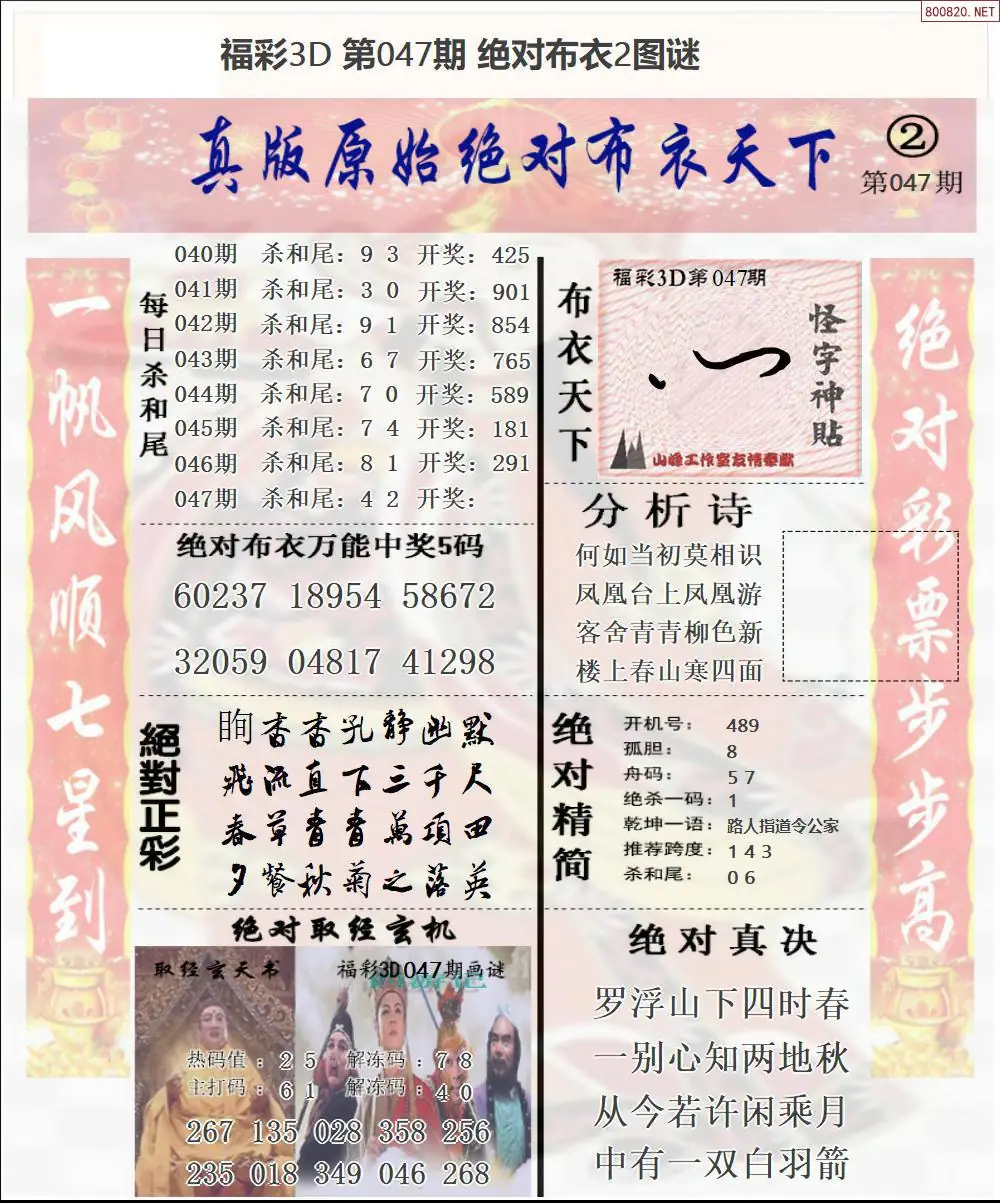 800820.NET
福彩3D 第047期 绝对布衣2图谜
真版原始绝对布衣天下
②
第047期
一帆风顺七星到
每日杀和尾
040期 杀和尾：9 3 开奖：425
041期 杀和尾：3 0 开奖：901
042期 杀和尾：9 1 开奖：854
043期 杀和尾：6 7 开奖：765
044期 杀和尾：7 0 开奖：589
045期 杀和尾：7 4 开奖：181
046期 杀和尾：8 1 开奖：291
047期 杀和尾：4 2 开奖：
绝对布衣万能中奖5码
60237 18954 58672
32059 04817 41298
絕對正彩
眴杳杳孔静幽默
飛流直下三千尺
春草青青萬項田
夕餐秋菊之落英
绝对取经玄机
取经玄天书
福彩3D047期画谜
热码值：2 5 解冻码：7 8
主打码：6 1 解冻码：4 0
267 135 028 358 256
235 018 349 046 268
布衣天下
福彩3D第047期
怪字神貼
山峰工作室友情奉献
分析诗
何如当初莫相识
凤凰台上凤凰游
客舍青青柳色新
楼上春山寒四面
绝对精简
开机号： 489
孤胆： 8
舟码： 5 7
绝杀一码：1
乾坤一语：路人指道令公家
推荐跨度：1 4 3
杀和尾： 0 6
绝对真决
罗浮山下四时春
一别心知两地秋
从今若许闲乘月
中有一双白羽箭
绝对彩票步步高